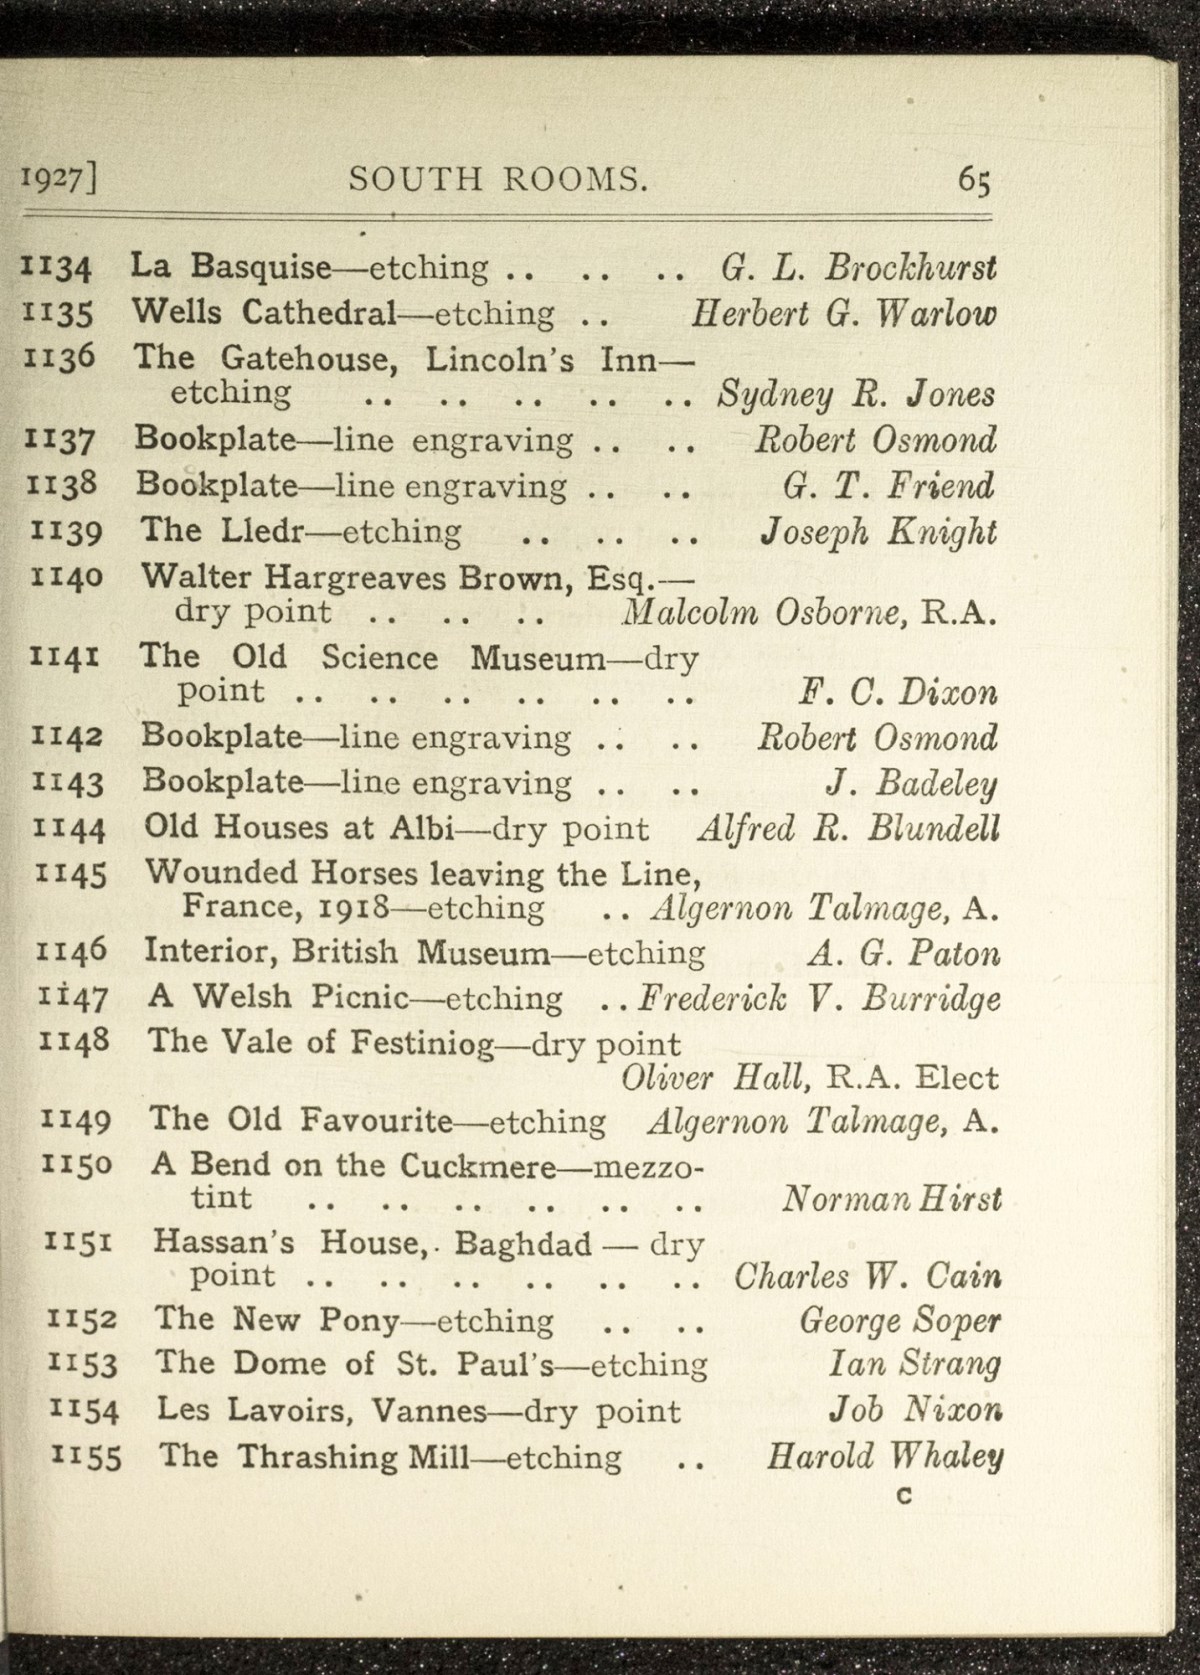 1927] SOUTH ROOMS. 65
1134 La Basquise—etching .. .. .. G. L. Brockhurst
1135 Wells Cathedral—etching .. Herbert G. Warlow
1136 The Gatehouse, Lincoln's Inn—
etching .. .. .. .. .. Sydney R. Jones
1137 Bookplate—line engraving .. .. Robert Osmond
1138 Bookplate—line engraving .. .. G. T. Friend
1139 The Lledr—etching .. .. .. Joseph Knight
1140 Walter Hargreaves Brown, Esq.—
dry point .. .. .. Malcolm Osborne, R.A.
1141 The Old Science Museum—dry
point .. .. .. .. .. .. F. C. Dixon
1142 Bookplate—line engraving .. .. Robert Osmond
1143 Bookplate—line engraving .. .. J. Badeley
1144 Old Houses at Albi—dry point Alfred R. Blundell
1145 Wounded Horses leaving the Line,
France, 1918—etching .. Algernon Talmage, A.
1146 Interior, British Museum—etching A. G. Paton
1147 A Welsh Picnic—etching .. Frederick V. Burridge
1148 The Vale of Festiniog—dry point
Oliver Hall, R.A. Elect
1149 The Old Favourite—etching Algernon Talmage, A.
1150 A Bend on the Cuckmere—mezzo-
tint .. .. .. .. .. .. Norman Hirst
1151 Hassan's House, Baghdad — dry
point .. .. .. .. .. .. Charles W. Cain
1152 The New Pony—etching .. .. George Soper
1153 The Dome of St. Paul's—etching Ian Strang
1154 Les Lavoirs, Vannes—dry point Job Nixon
1155 The Thrashing Mill—etching .. Harold Whaley
C